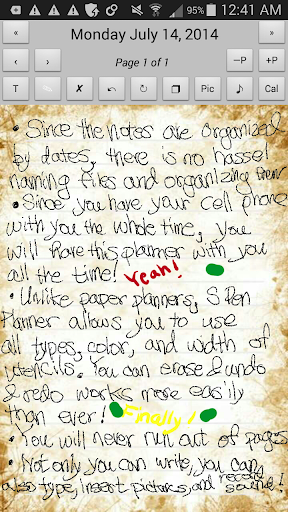 95% 12:41 AM
« Monday July 14, 2014 »
‹ › Page 1 of 1 –P +P
T ✗ Pic ♪ Cal
• Since the notes are organized
by dates, there is no hassel
naming files and organizing them
• Since you have your cell phone
with you the whole time, you
will have this planner with you
all the time! Yeah!
• Unlike paper planners, S Pen
Planner allows you to use
all types, color, and width of
utencils. You can erase & undo
& redo works more easily
than ever! Finally!
• You will never run out of pages
• Not only you can write, you can
also type, insert pictures, and record sound!